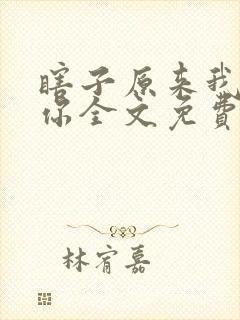 瞎子原来我
你全文免費
林宥嘉